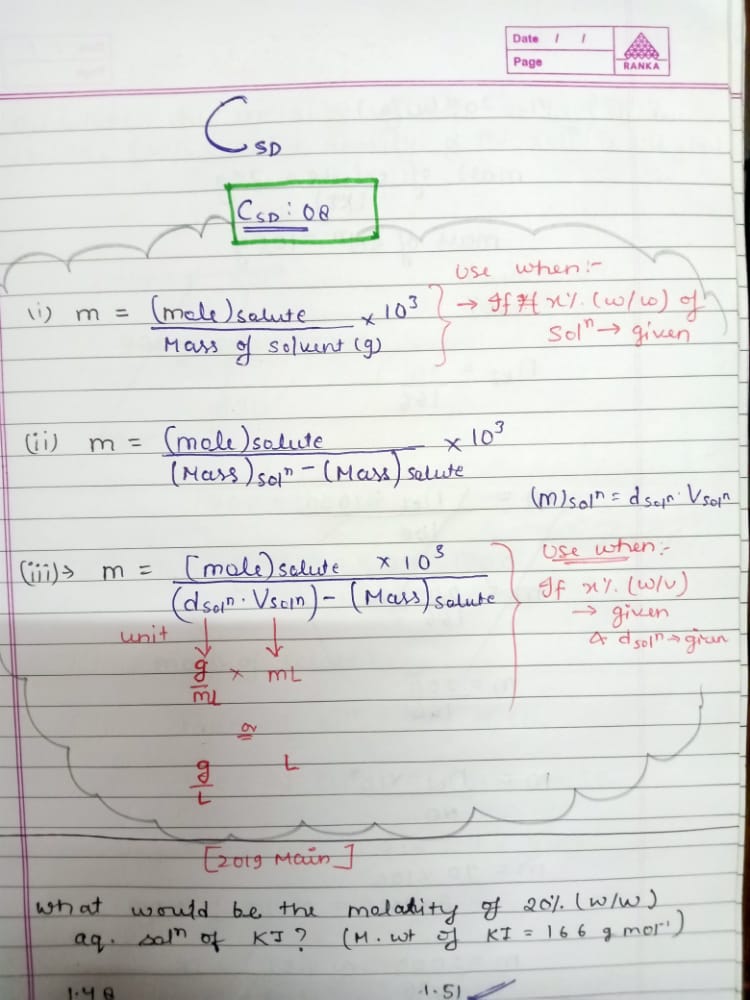 Date / /
Page
RANKA
C SD
C SD : 08
Use when:-
(i) m = (mole)solute / Mass of solvent (g) × 10³
→ If x% (w/w) of
Solⁿ → given
(ii) m = (mole)solute / (Mass)solⁿ - (Mass)solute × 10³
(m)solⁿ = dsolⁿ · Vsolⁿ
(iii)→ m = (mole)solute × 10³ / (dsolⁿ · Vsolⁿ) - (Mass)solute
Use when:-
If x% (w/v)
→ given
& dsolⁿ → given
unit
g/mL × mL
or
g/L L
[2019 Main]
What would be the molality of 20% (w/w)
aq. solⁿ of KI? (M. wt of KI = 166 g mol⁻¹)
1.48 1.51